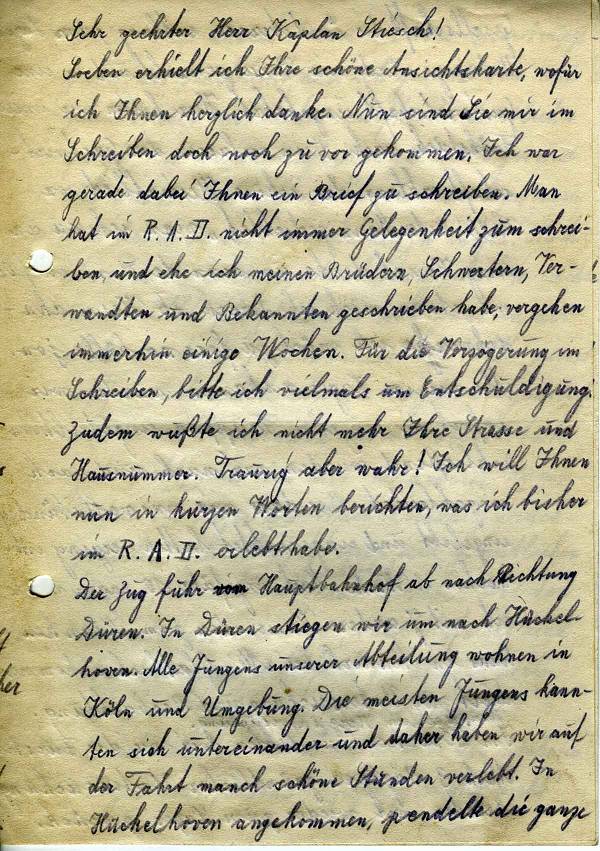 Sehr geehrter Herr Kaplan Stresch!
Soeben erhielt ich Ihre schöne Ansichtskarte, wofür
ich Ihnen herzlich danke. Nun sind Sie mir im
Schreiben doch noch zu vor gekommen. Ich war
gerade dabei Ihnen ein Brief zu schreiben. Man
hat im R. A. D. nicht immer Gelegenheit zum schrei-
ben, und ehe ich meinen Brüdern, Schwestern, Ver-
wandten und Bekannten geschrieben habe, vergehen
immerhin einige Wochen. Für die Verzögerung im
Schreiben, bitte ich vielmals um Entschuldigung.
Zudem wußte ich nicht mehr Ihre Strasse und
Hausnummer. Traurig aber wahr! Ich will Ihnen
nun in kurzen Worten berichten, was ich bisher
im R. A. D. erlebt habe.
Der Zug fuhr vom Hauptbahnhof ab nach Richtung
Düren. In Düren stiegen wir um nach Hückel-
hoven. Alle Jungens unserer Abteilung wohnen in
Köln und Umgebung. Die meisten Jungens kann-
ten sich untereinander und daher haben wir auf
der Fahrt manch schöne Stunden verlebt. In
Hückelhoven angekommen, pendelte die ganze